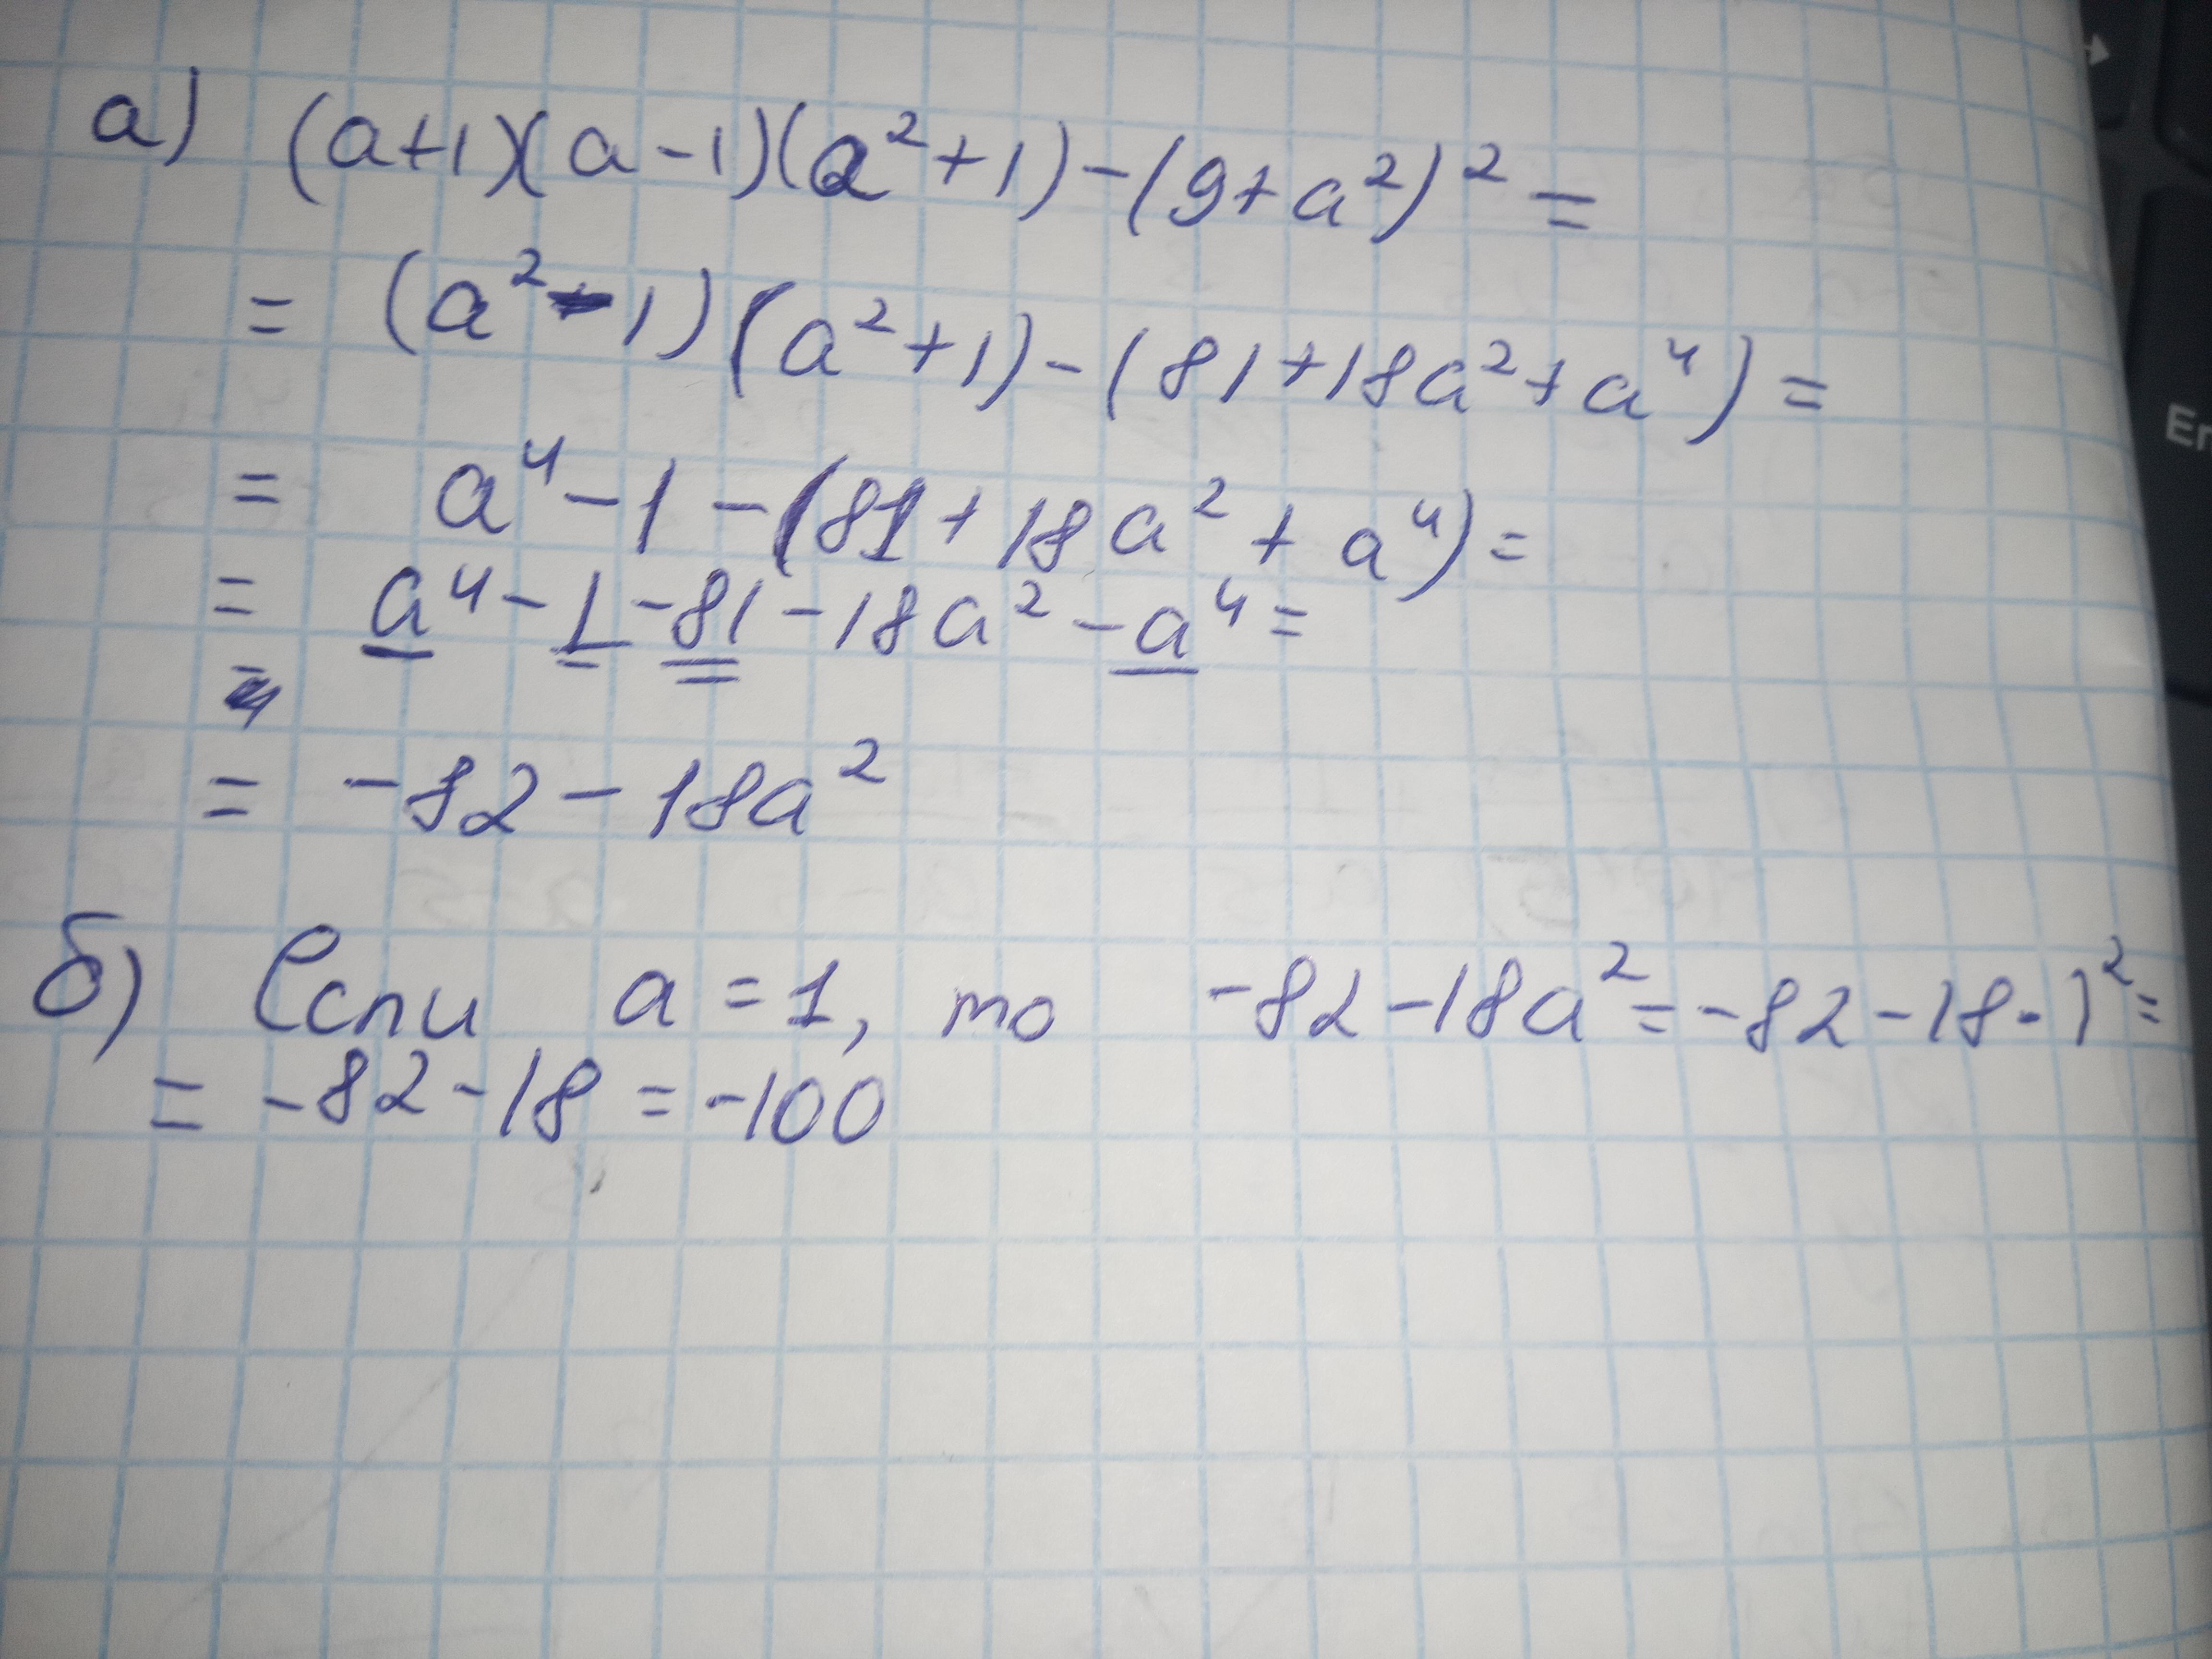 а) (a+1)(a-1)(a²+1)-(9+a²)²=
= (a²-1)(a²+1)-(81+18a²+a⁴)=
= a⁴-1-(81+18a²+a⁴)=
= a⁴-1-81-18a²-a⁴=
=
= -82-18a²
б) Если a=1, то -82-18a²=-82-18·1²=
= -82-18=-100